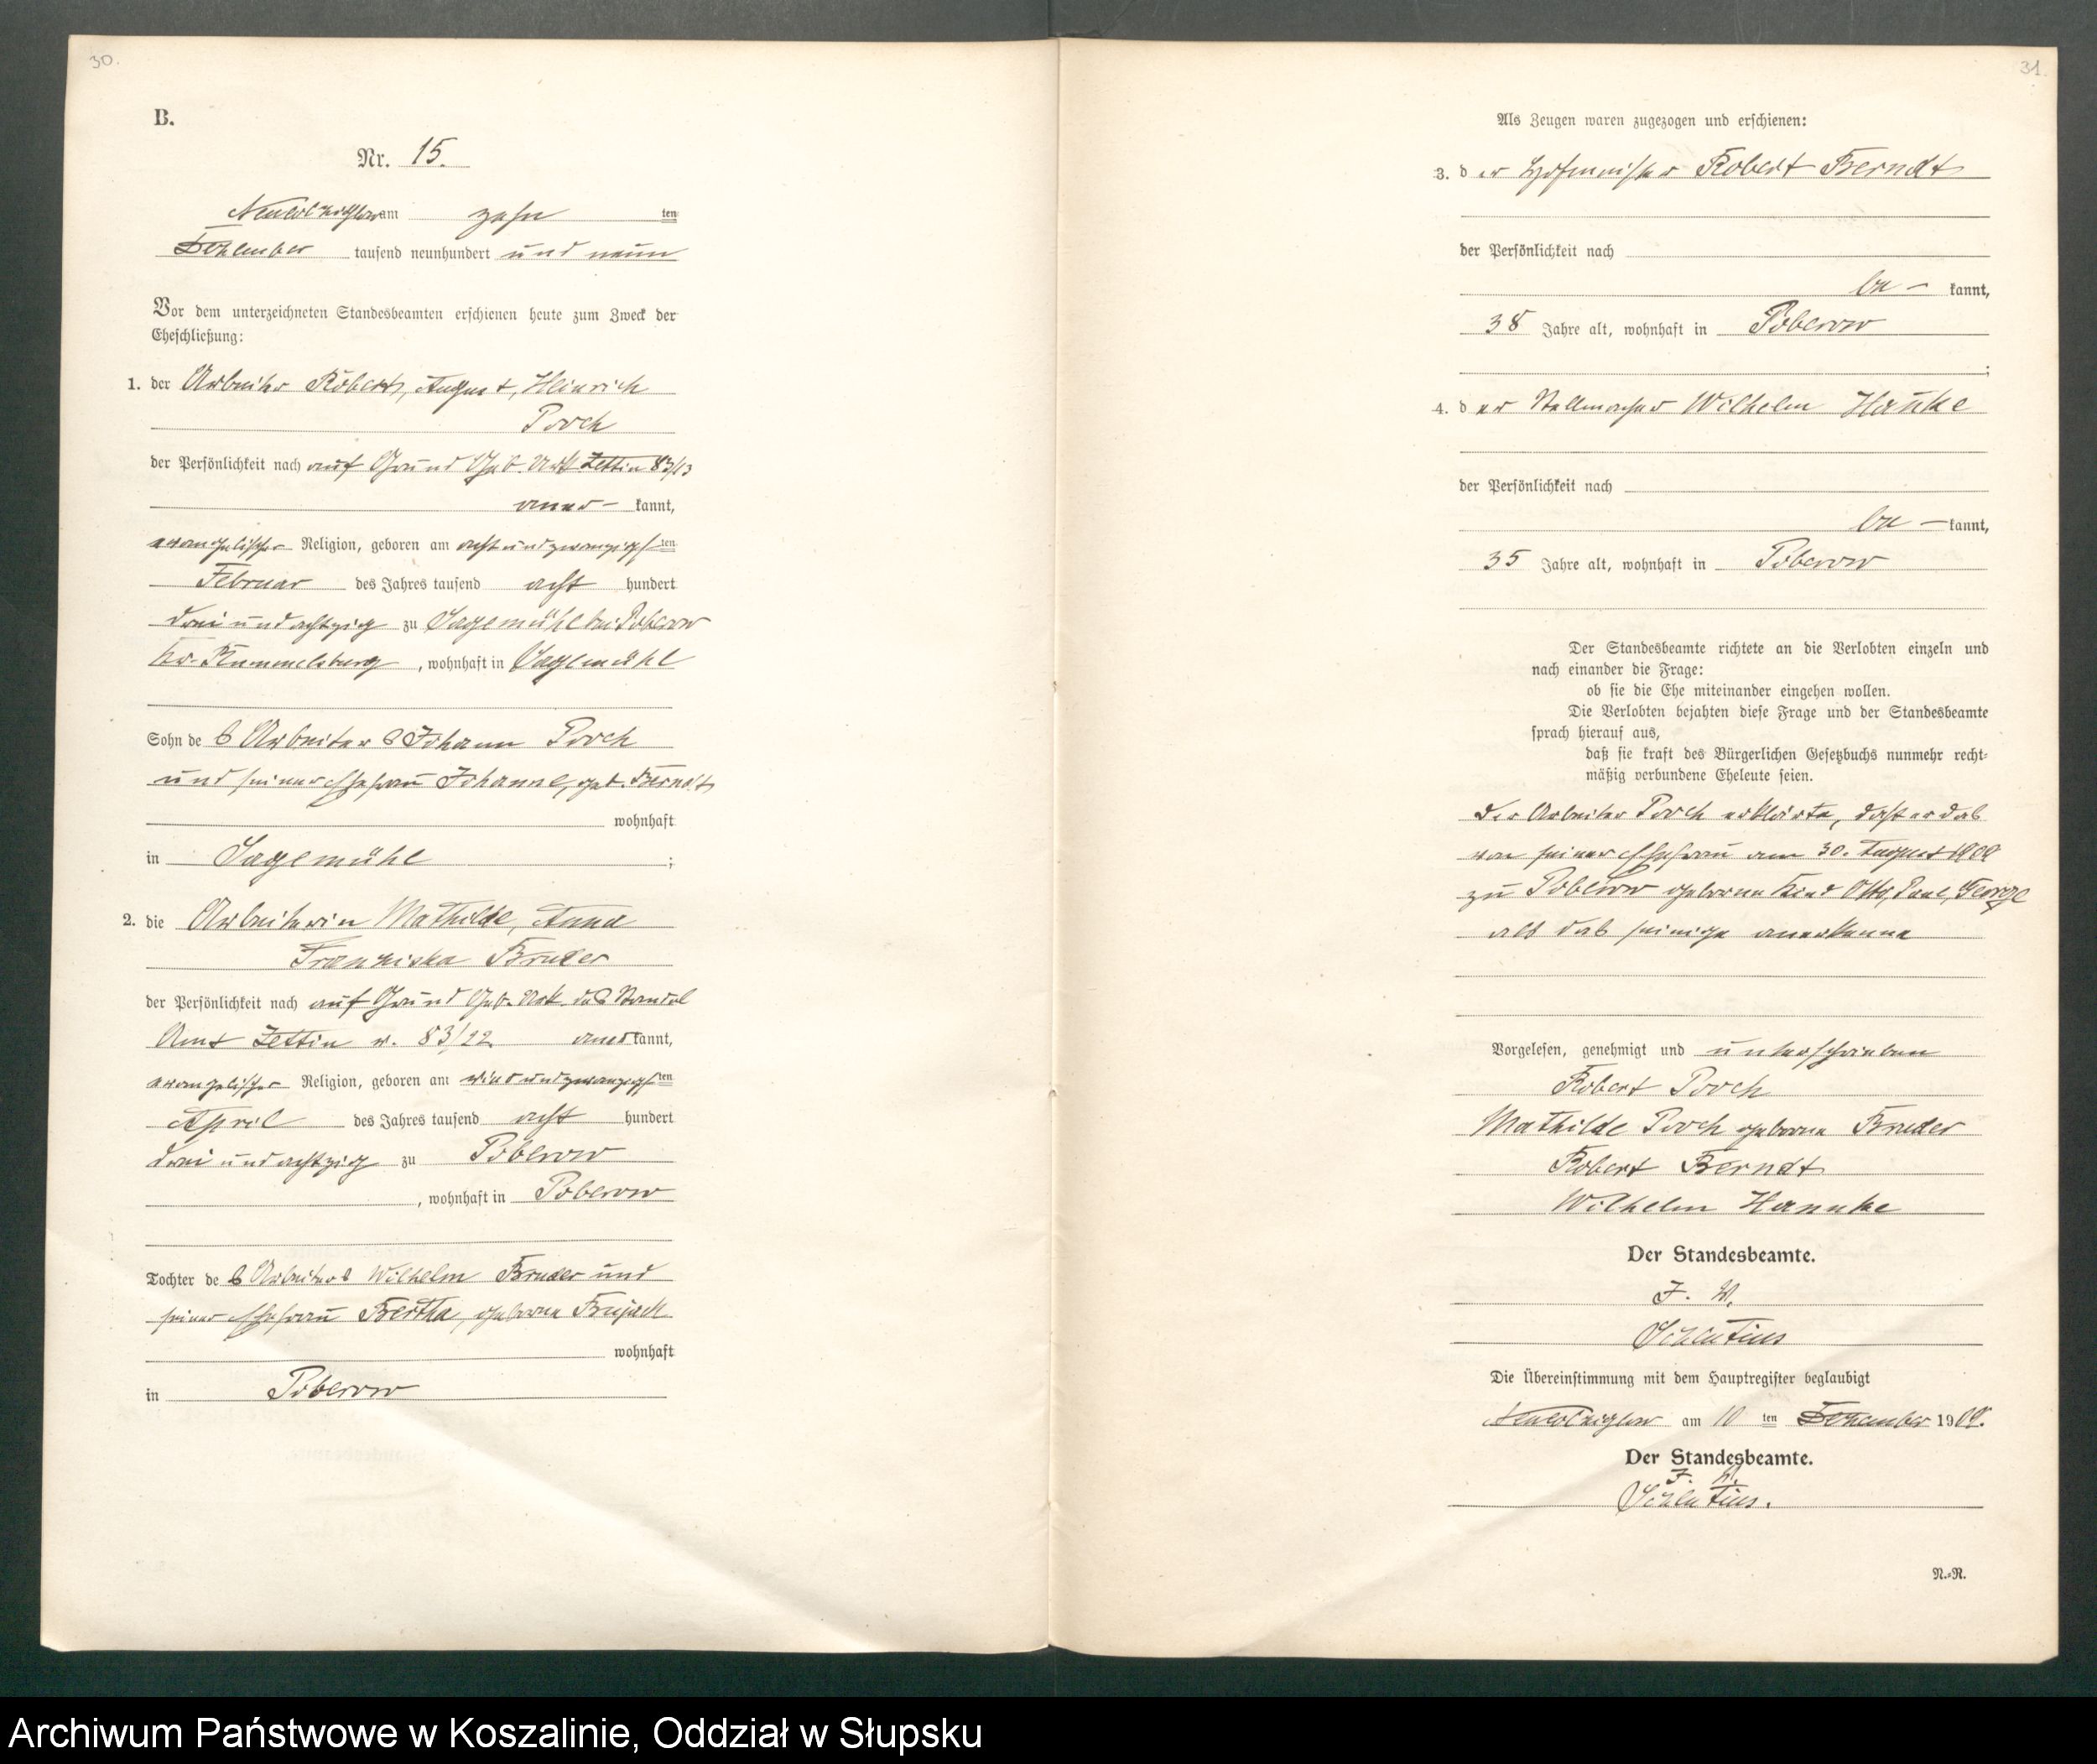 30.
B.
Nr. 15.
Neukolziglow am zehn ten
Dezember tausend neunhundert und neun
Vor dem unterzeichneten Standesbeamten erschienen heute zum Zweck der
Eheschließung:
1. der Arbeiter Robert, August, Heinrich
Porch
der Persönlichkeit nach auf Grund Geb. Urk. Zettin 83/13
aner- kannt,
evangelischer Religion, geboren am achtundzwanzigsten
Februar des Jahres tausend acht hundert
dreiundachtzig zu Sagemühl bei Poberow
Kr. Rummelsburg, wohnhaft in Sagemühl
Sohn des Arbeiters Johann Porch
und seiner Ehefrau Johanne, geb. Berndt
wohnhaft
in Sagemühl ;
2. die Arbeiterin Mathilde, Anna
Franziska Bruder
der Persönlichkeit nach auf Grund Geb. Urk. des Standes
Amt Zettin v. 83/22 anerkannt,
evangelischer Religion, geboren am vierundzwanzigsten
April des Jahres tausend acht hundert
dreiundachtzig zu Poberow
, wohnhaft in Poberow
Tochter des Arbeiters Wilhelm Bruder und
seiner Ehefrau Bertha, geborene
wohnhaft
in Poberow
31.
Als Zeugen waren zugezogen und erschienen:
3. der Hofmeister Robert Berndt
der Persönlichkeit nach
be- kannt,
38 Jahre alt, wohnhaft in Poberow
;
4. der Stellmacher Wilhelm Hanke
der Persönlichkeit nach
be- kannt,
35 Jahre alt, wohnhaft in Poberow
Der Standesbeamte richtete an die Verlobten einzeln und
nach einander die Frage:
ob sie die Ehe miteinander eingehen wollen.
Die Verlobten bejahten diese Frage und der Standesbeamte
sprach hierauf aus,
daß sie kraft des Bürgerlichen Gesetzbuchs nunmehr recht-
mäßig verbundene Eheleute seien.
Der Arbeiter Porch erklärte, daß er das
von seiner Ehefrau am 30. August 1909
zu Poberow geborene Kind Otto, Paul, George
als das seinige anerkenne
Vorgelesen, genehmigt und unterschrieben
Robert Porch
Mathilde Porch geborene Bruder
Robert Berndt
Wilhelm Hannke
Der Standesbeamte.
J. V.
Die Übereinstimmung mit dem Hauptregister beglaubigt
Neukolziglow am 10 ten Dezember 1909.
Der Standesbeamte.
J. V.
N.-R.
Archiwum Państwowe w Koszalinie, Oddział w Słupsku